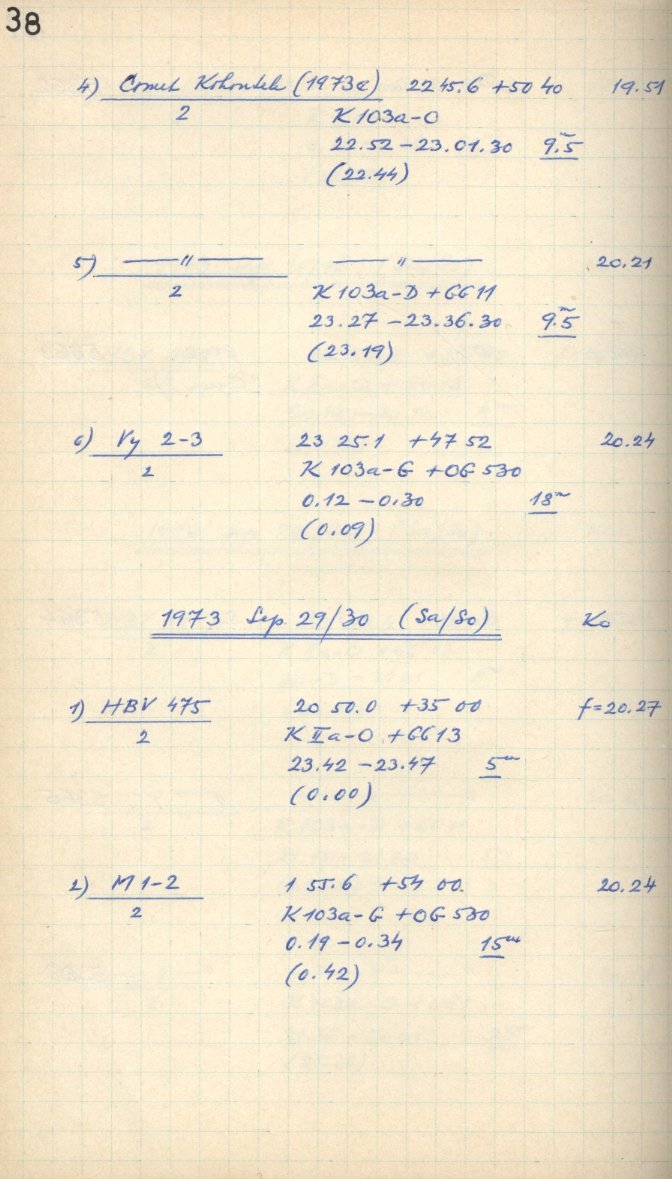 38
4) Comet Kohoutek (1973e) 22 45.6 +50 40 19.51
2 K 103a-O
22.52 – 23.01.30 9.5ᵐ
(22.44)
5) — " — — " — 20.21
2 K 103a-D + GG 11
23.27 – 23.36.30 9.5ᵐ
(23.19)
6) Vy 2-3 23 25.1 +47 52 20.24
2 K 103a-G + OG 530
0.12 – 0.30 18ᵐ
(0.09)
1973 Sep. 29/30 (Sa/So) Ko
1) HBV 475 20 50.0 +35 00 f=20.27
2 K IIa-O + GG 13
23.42 – 23.47 5ᵐ
(0.00)
2) M 1-2 1 55.6 +54 00. 20.24
2 K 103a-G + OG 530
0.19 – 0.34 15ᵐ
(0.42)